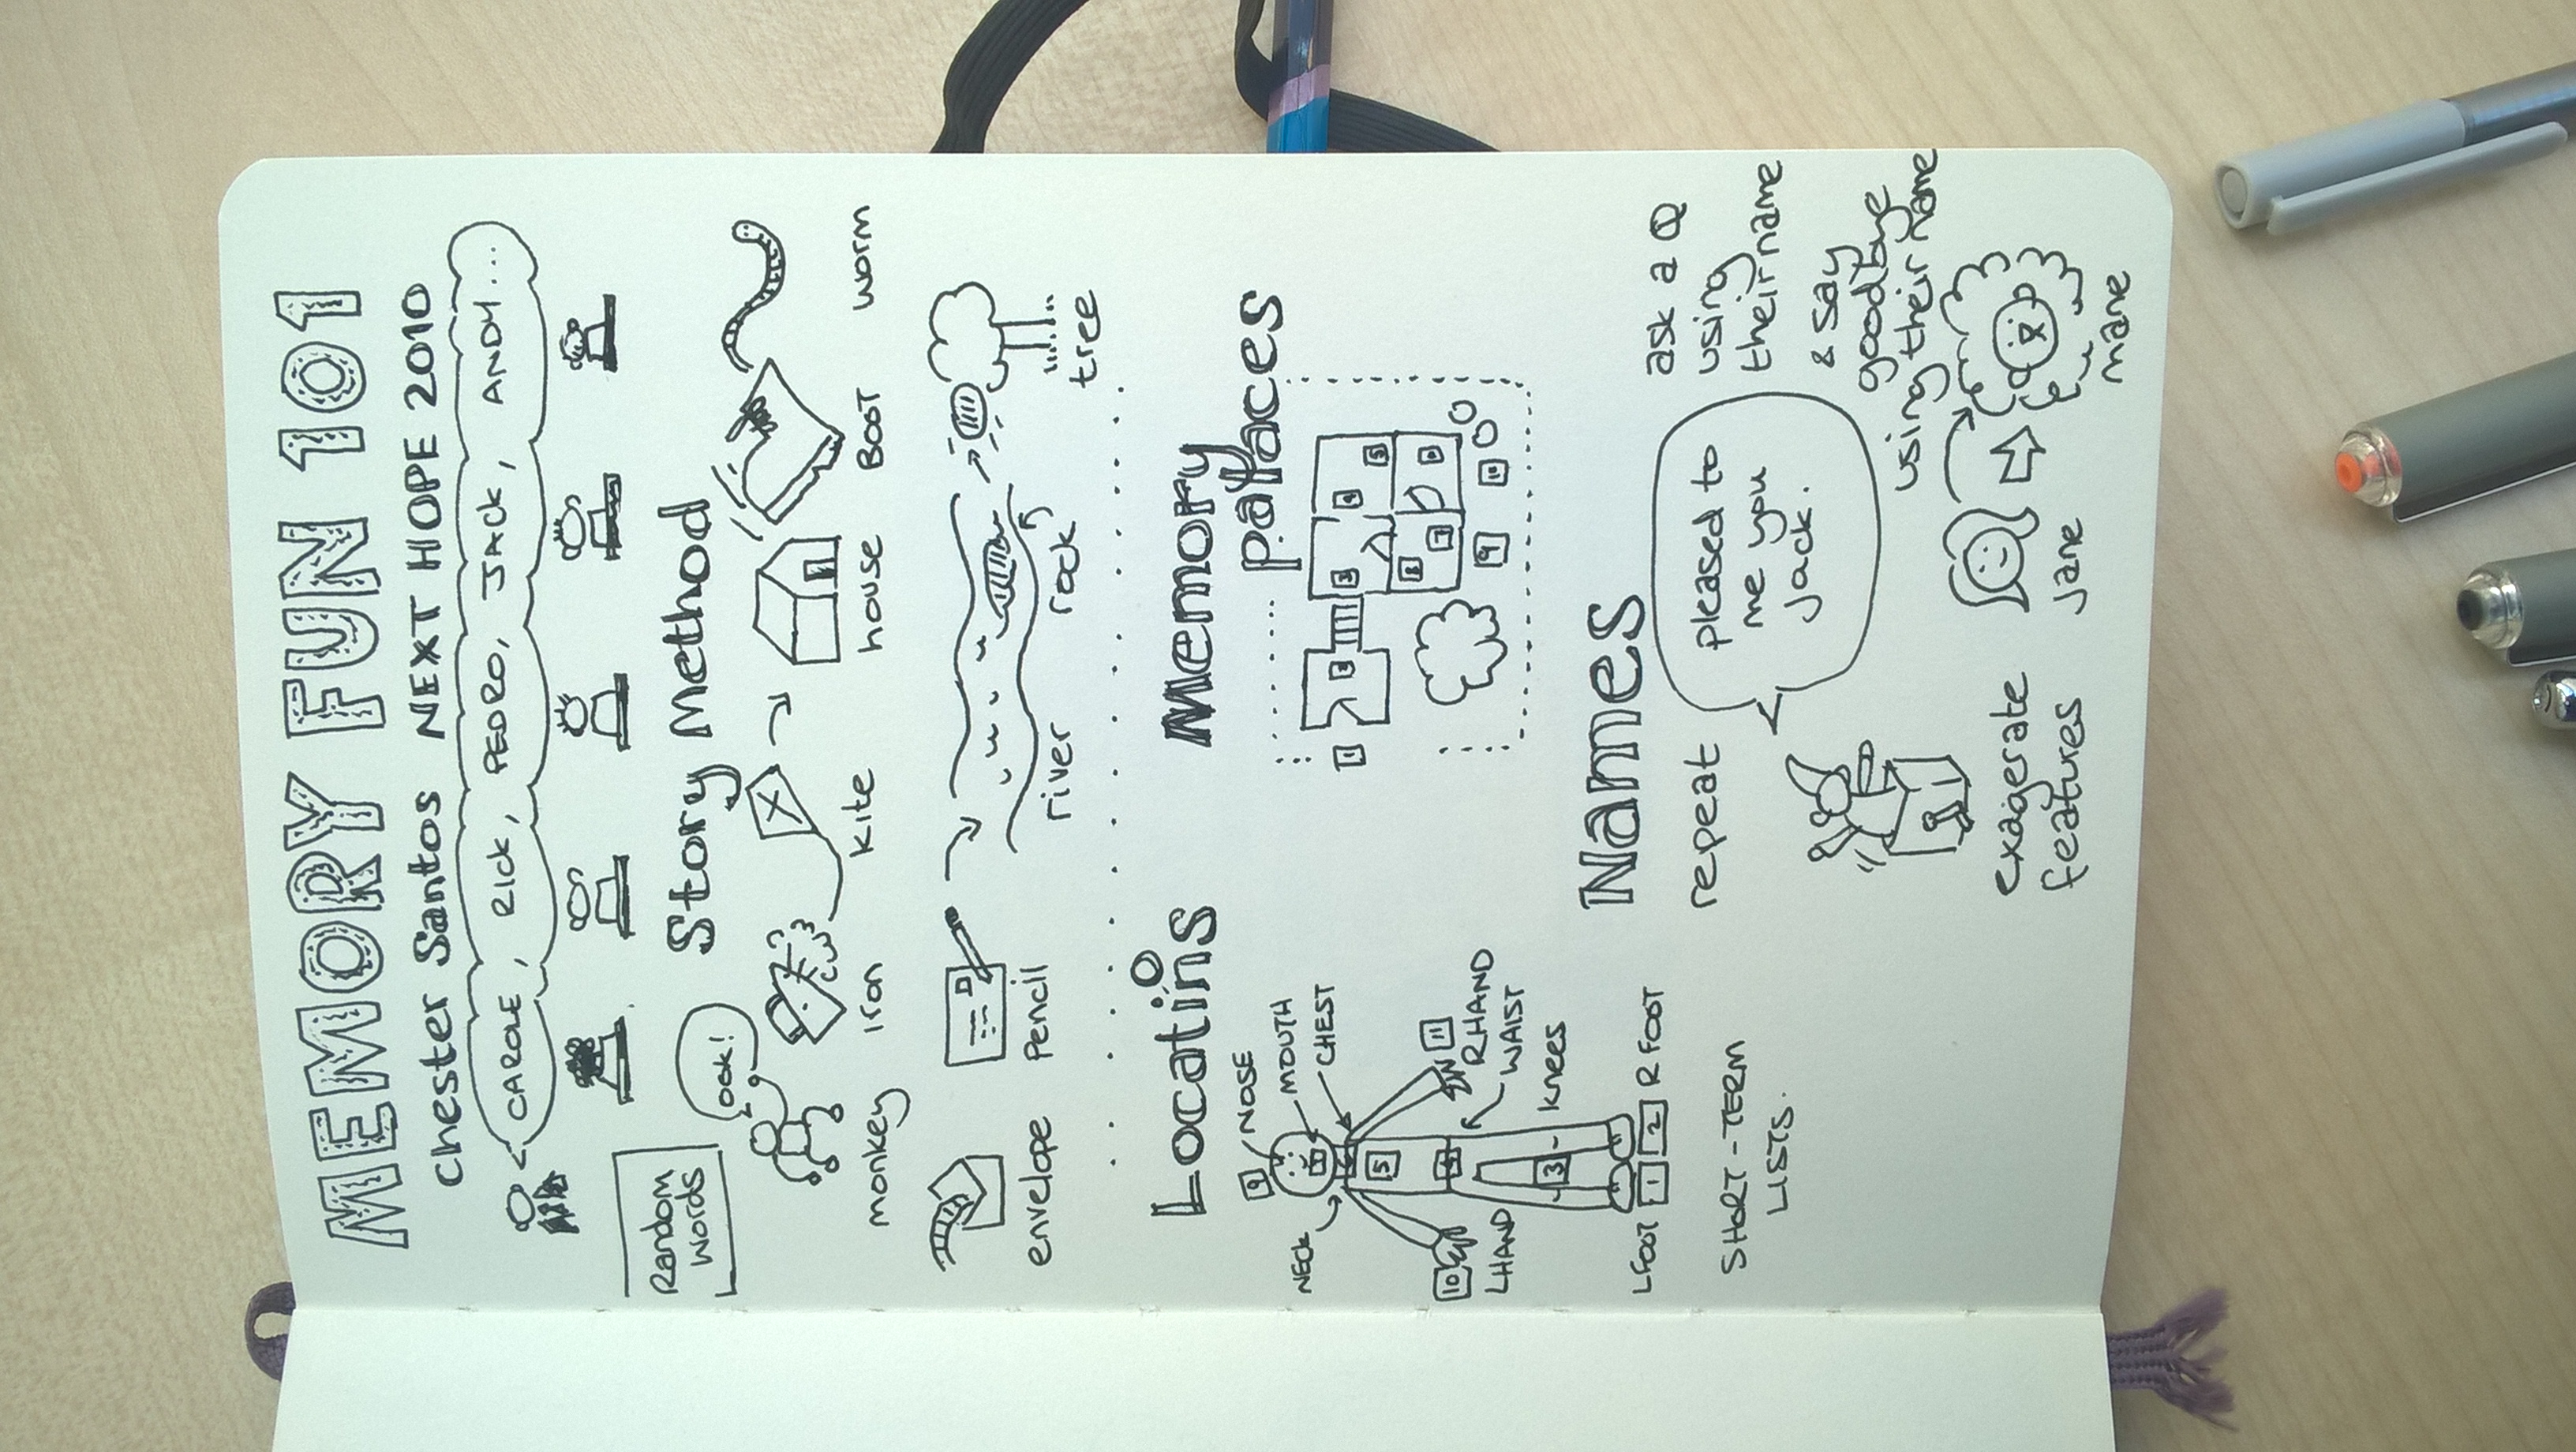 MEMORY FUN 101
Chester Santos NEXT HOPE 2010
CAROLE, RICK, PEDRO, JACK, ANDY...
Random
Words
Story Method
ook!
monkey Iron kite house BOOT worm
envelope Pencil river rock tree
Locatins
o
Memory
palaces
9
NOSE
MOUTH
CHEST
NECK
7
5
10
11
LHAND
RHAND
WAIST
3
Knees
LFOOT 1 2 R FOOT
SHORT-TERM
LISTS.
1
9
10
Names
repeat
pleased to
me you
Jack.
ask a Q
using
their name
& say
goodbye
using their name
exagerate
features
Jane
mane